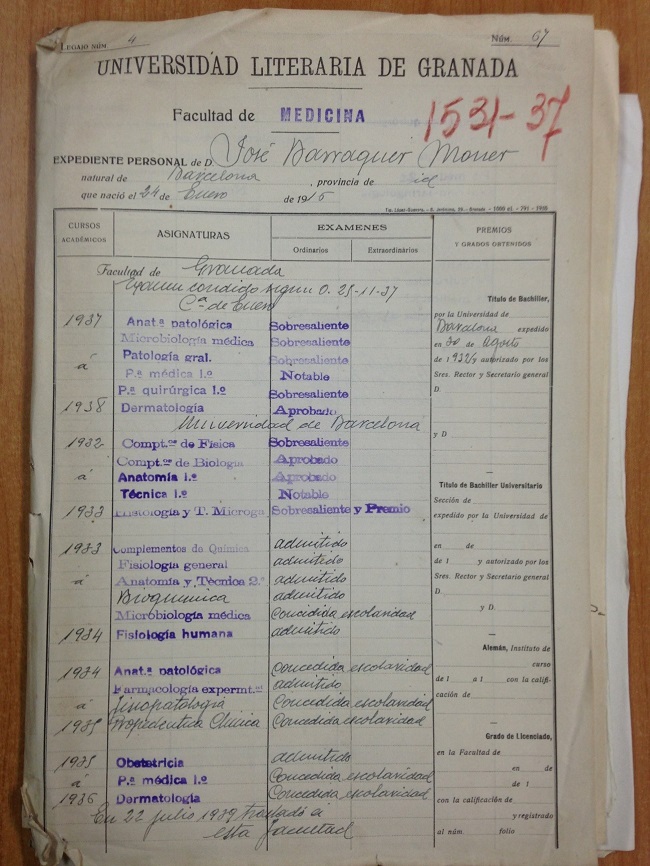 LEGAJO NÚM. 4 NÚM. 67
UNIVERSIDAD LITERARIA DE GRANADA
Facultad de MEDICINA
1531-37
EXPEDIENTE PERSONAL de D. José Barraquer Moner
natural de Barcelona, provincia de id
que nació el 24 de Enero de 1915
CURSOS ACADÉMICOS
ASIGNATURAS
EXAMENES
Ordinarios Extraordinarios
PREMIOS
Y GRADOS OBTENIDOS
Facultad de Granada
Examen condido según O. 25-11-37
Cª de Enero
1937 Anat.ª patológica Sobresaliente
Microbiología médica Sobresaliente
á Patología gral. Sobresaliente
P.ª médica 1.º Notable
P.ª quirúrgica 1.º Sobresaliente
1938 Dermatología Aprobado
Universidad de Barcelona
1932 Compt.os de Física Sobresaliente
Compt.os de Biología Aprobado
á Anatomía 1.º Aprobado
Técnica 1.º Notable
1933 Histología y T. Microga Sobresaliente y Premio
1933 Complementos de Química admitido
Fisiología general admitido
á Anatomía y Técnica 2.º admitido
Bioquimica admitido
Microbiología médica Concedida escolaridad
1934 Fisiología humana admitido
1934 Anat.ª patológica Concedida escolaridad
Farmacología expermt.al admitido
á fisiopatología Concedida escolaridad
1935 Propedeutica Clínica Concedida escolaridad
1935 Obstetricia admitido
á P.ª médica 1.º Concedida escolaridad
1936 Dermatología Concedida escolaridad
En 22 julio 1939 traslado á
esta facultad
Título de Bachiller,
por la Universidad de
Barcelona expedido
en 30 de Agosto
de 1932 y autorizado por los
Sres. Rector y Secretario general
D.
y D.
Título de Bachiller Universitario
Sección de
expedido por la Universidad de
en de
de 1 y autorizado por los
Sres. Rector y Secretario general
D.
y D.
Alemán, Instituto de
curso
de 1 a 1 con la califi-
cación de
Grado de Licenciado,
en la Facultad de
en de
de 1
con la calificación de
y registrado
al núm. folio